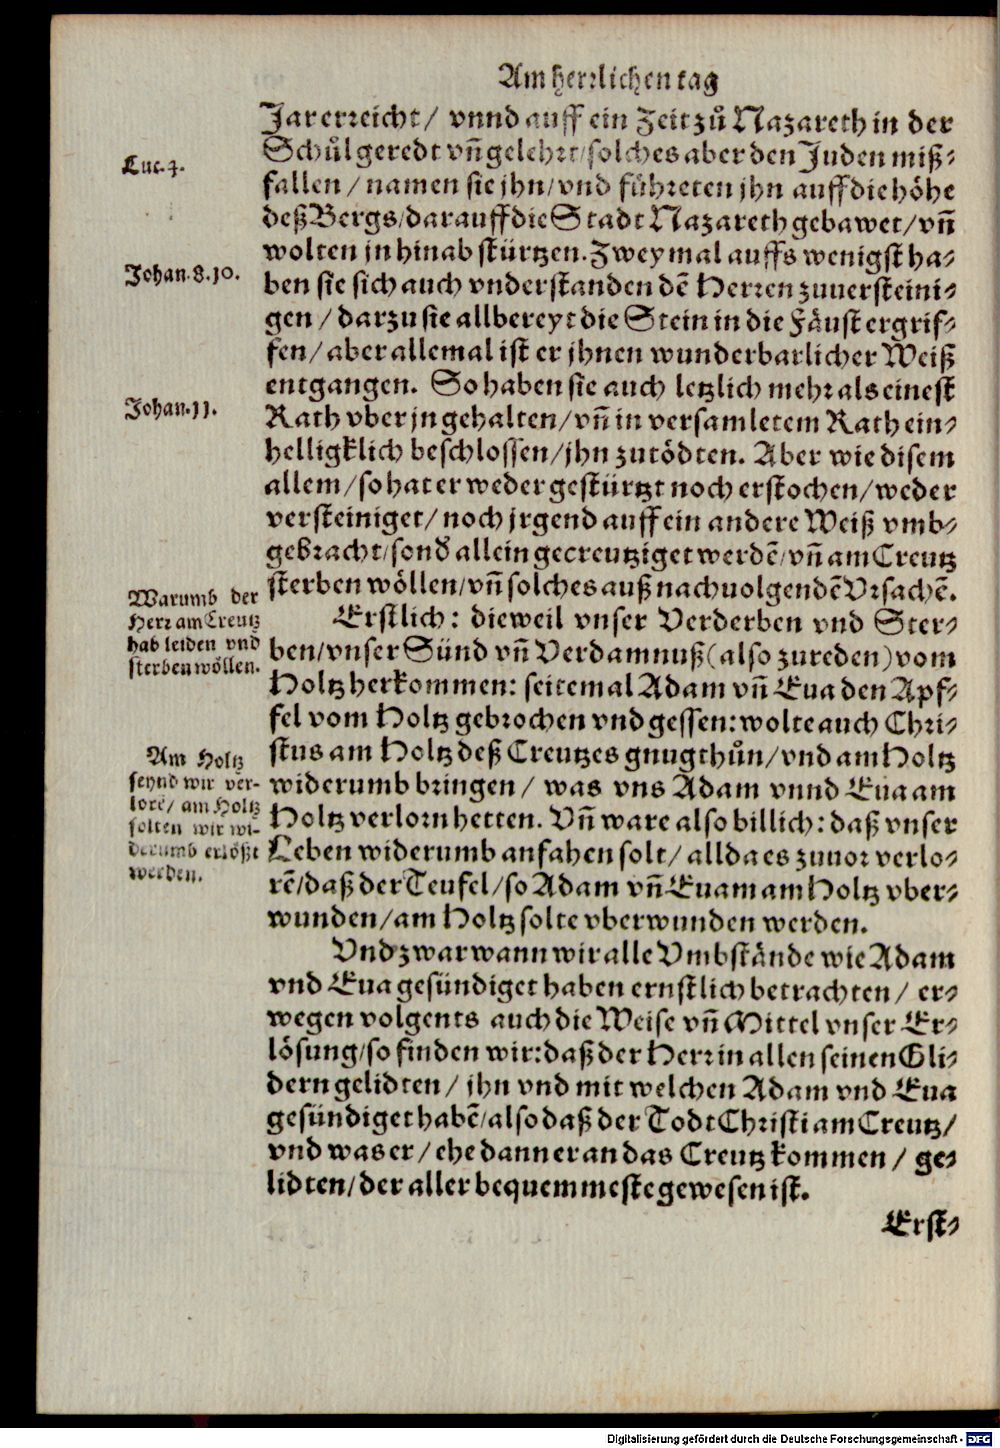 Am herrlichen tag
Jar erreicht/ vnnd auff ein Zeit zů Nazareth in der
Schůl geredt vñ gelehrt/ solches aber den Juden miß-
Luc. 4.
fallen/ namen sie jhn/ vnd führeten jhn auff die höhe
deß Bergs/ darauff die Stadt Nazareth gebawet/ vñ
wolten jn hinab stürtzen. Zwey mal auffs wenigst ha-
Johan. 8. 10.
ben sie sich auch vnderstanden dē Herren zuuersteini-
gen/ darzu sie allbereyt die Stein in die Fäust ergrif-
fen/ aber allemal ist er jhnen wunderbarlicher Weiß
entgangen. So haben sie auch letzlich mehr als einest
Johan. 11.
Rath vber jn gehalten/ vñ in versamletem Rath ein-
helligklich beschlossen/ jhn zu tödten. Aber wie disem
allem/ so hat er weder gestürtzt noch erstochen/ weder
versteiniget/ noch jrgend auff ein andere Weiß vmb-
gebracht/ sond̕ allein gecreutziget werdē/ vñ am Creutz
sterben wöllen/ vñ solches auß nachuolgendē Vrsachē.
Warumb der
Herr am Creutz
hab leiden vnd
sterben wöllen.
Erstlich: dieweil vnser Verderben vnd Ster-
ben/ vnser Sünd vñ Verdamnuß (also zureden) vom
Holtz herkommen: seitemal Adam vñ Eua den Apf-
fel vom Holtz gebrochen vnd gessen: wolte auch Chri-
stus am Holtz deß Creutzes gnugthůn/ vnd am Holtz
Am Holtz
seynd wir ver-
lorē/ am Holtz
solten wir wi-
derumb erlößt
werden.
widerumb bringen/ was vns Adam vnnd Eua am
Holtz verlorn hetten. Vñ ware also billich: daß vnser
Leben widerumb anfahen solt/ allda es zuuor verlo-
rē/ daß der Teufel/ so Adam vñ Euam am Holtz vber-
wunden/ am Holtz solte vberwunden werden.
Vnd zwar wann wir alle Vmbstände wie Adam
vnd Eua gesündiget haben ernstlich betrachten/ er-
wegen volgents auch die Weise vñ Mittel vnser Er-
lösung/ so finden wir: daß der Herr in allen seinen Gli-
dern gelidten/ jhn vnd mit welchen Adam vnd Eua
gesündiget habē/ also daß der Todt Christi am Creutz/
vnd was er/ ehe dann er an das Creutz kommen/ ge-
lidten/ der aller bequemmeste gewesen ist.
Erst-
Digitalisierung gefördert durch die Deutsche Forschungsgemeinschaft - DFG